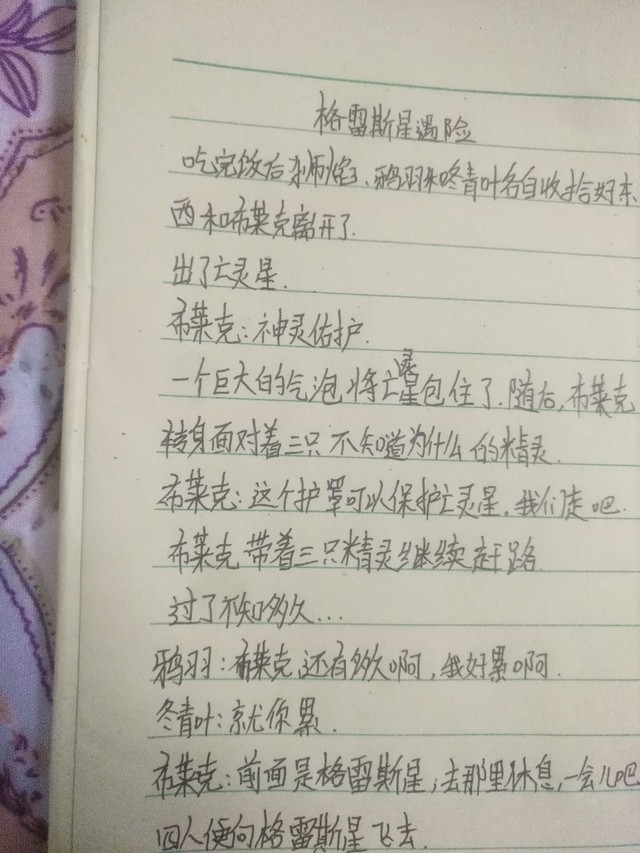 格雷斯星遇险
吃完饭后、鸦羽和冬青叶各自收拾好东
西和布莱克离开了.
出了亡灵星.
布莱克:神灵佑护.
一个巨大的气泡将亡灵星包住了.随后,布莱克
转身面对着三只不知道为什么的精灵.
布莱克:这个护罩可以保护亡灵星,我们走吧.
布莱克带着三只精灵继续赶路.
过了不知多久...
鸦羽:布莱克,还有多久啊,我好累啊.
冬青叶:就你累.
布莱克:前面是格雷斯星,去那里休息,一会儿吧
四人便向格雷斯星飞去.